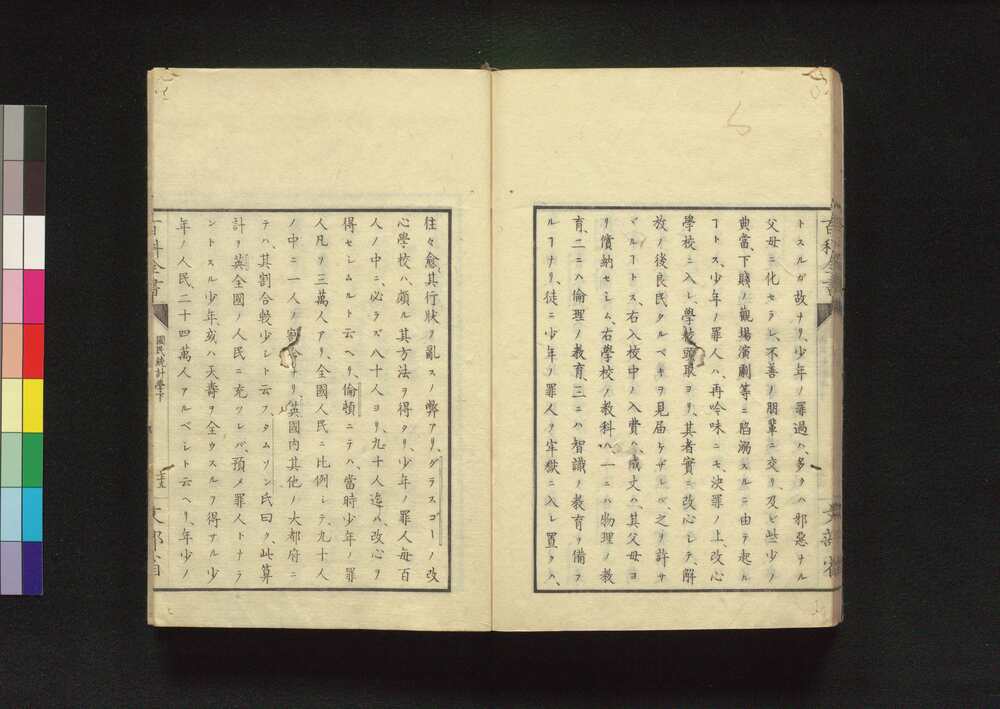 トスルガ故ナリ、少年ノ罪過ハ、多クハ邪惡ナル
父母ニ化セラレ、不善ノ朋輩ニ交リ、及ビ些少ノ
典當、下賤ノ觀場演劇等ニ陷溺スルニ由テ起ル
ヿトス、少年ノ罪人ハ、再吟味ニモ、決罪ノ上改心
學校ニ入レ、學校頭取ヨリ、其者實ニ改心シテ、解
放ノ後良民タルベキヲ見届ケザレバ、之ヲ許サ
ヾルヿトス、右入校中ノ入費ハ、成丈ハ其父母ヨ
リ償納セシム、右學校ノ教科ハ、一ニハ物理ノ教
育、二ニハ倫理ノ教育、三ニハ智識ノ教育ヲ備フ
ルヿナリ、徒ニ少年ノ罪人ヲ牢獄ニ入レ置クハ、
往々愈其行狀ヲ亂スノ弊アリ、ダラスゴーノ改
心學校ハ、頗ル其方法ヲ得タリ、少年ノ罪人每百
人ノ中ニ、必ラズ八十人ヨリ、九十人迄ハ、改心ヲ
得セシムルト云ヘリ、倫頓ニテハ、當時少年ノ罪
人凡ソ三萬人アリ、全國人民ニ比例シテ、九十人
ノ中ニ一人ノ割合ナリ、英國内其他ノ大都府ニ
テハ、其割合較少シト云フ、タムソン氏曰ク、此算
計ヲ英全國ノ人民ニ充ツレバ、預メ罪人トナラ
ントスル少年或ハ天壽ヲ全ウスルヲ得アル少
年ノ人民、二十四萬人アルベシト云ヘリ、年少ノ
百科全書
國民統計學下
文部省